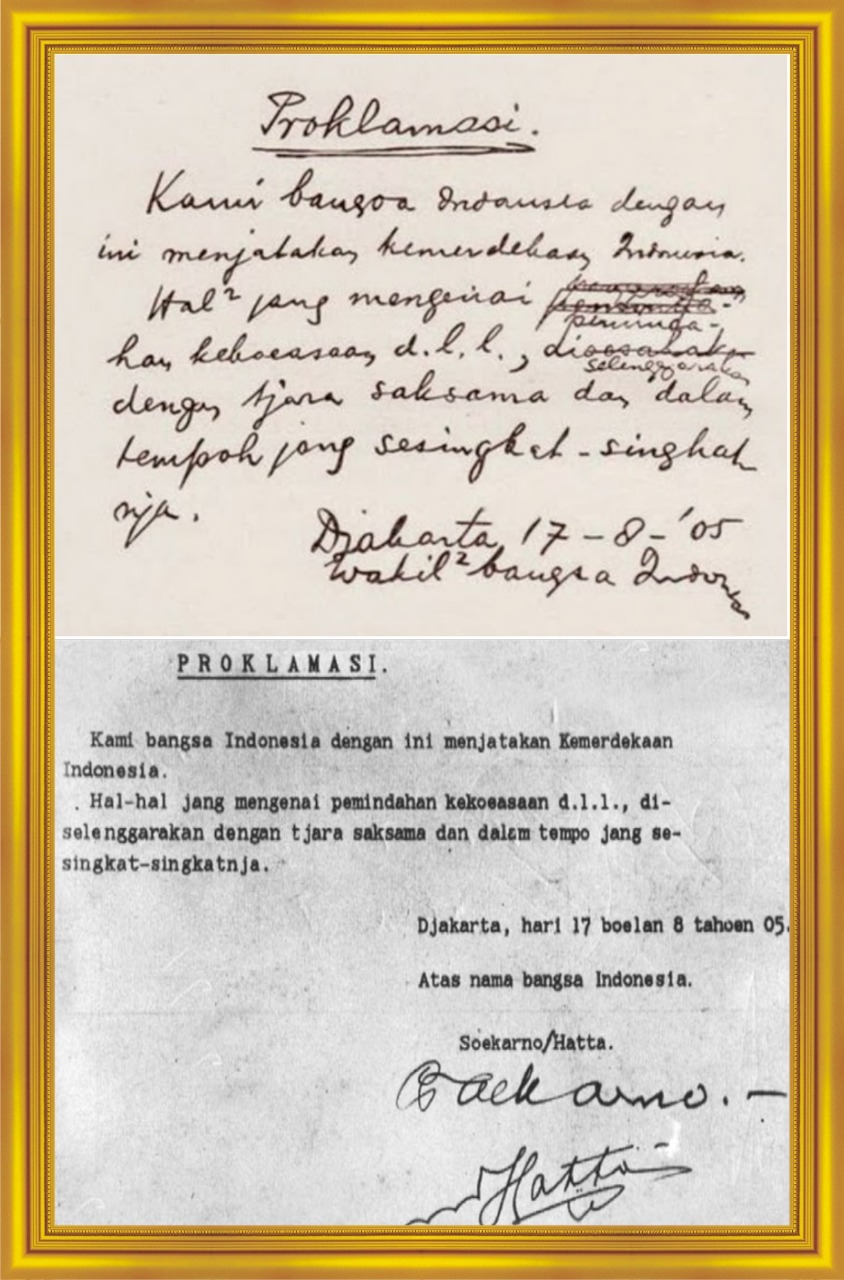 Proklamasi.
Kami bangsa Indonesia dengan
ini menjatakan kemerdekaan Indonesia.
Hal² jang mengenai
peminda-
han kekoeasaan d.l.l., di
selenggarakan
dengan tjara saksama dan dalam
tempoh jang sesingkat-singkat
nja.
Djakarta 17-8-'05
Wakil² bangsa Indonesia
PROKLAMASI.
Kami bangsa Indonesia dengan ini menjatakan Kemerdekaan
Indonesia.
Hal-hal jang mengenai pemindahan kekoeasaan d.l.l., di-
selenggarakan dengan tjara saksama dan dalam tempo jang se-
singkat-singkatnja.
Djakarta, hari 17 boelan 8 tahoen 05.
Atas nama bangsa Indonesia.
Soekarno/Hatta.
Soekarno.—
Hatta